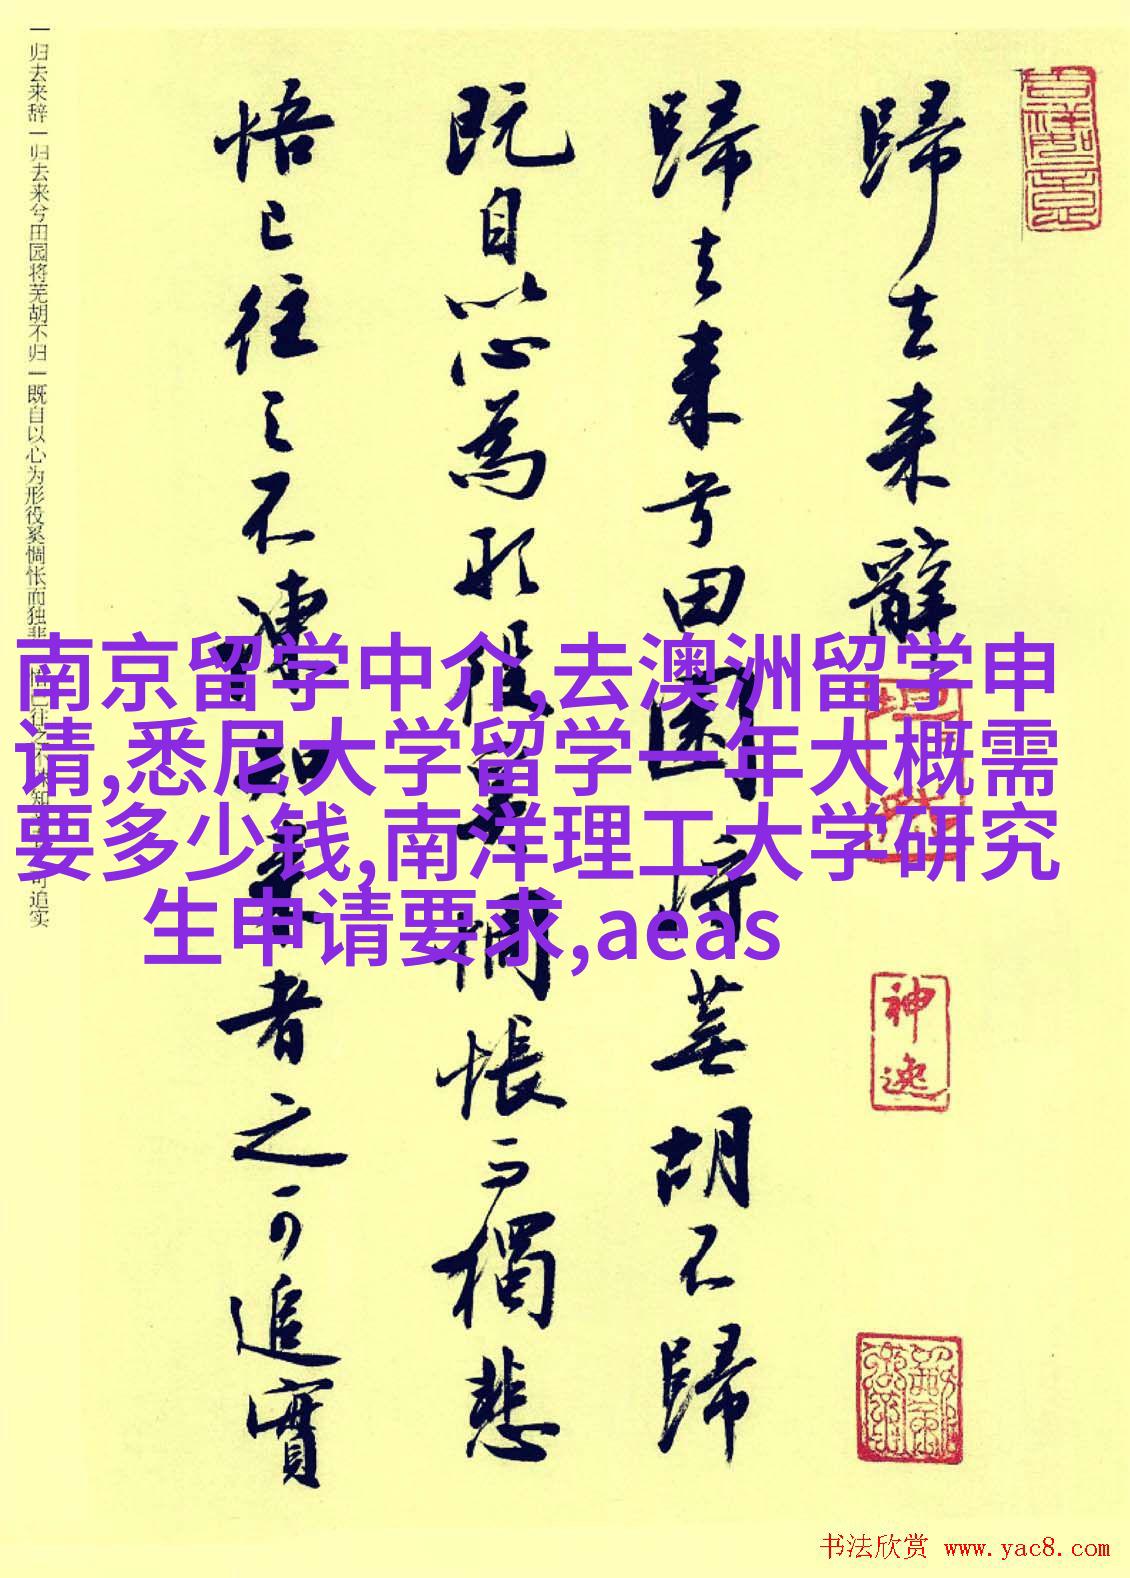 歸去来辭
歸去来兮田園将蕪胡不歸
既自以心為形役奚惆悵而獨悲
悟已往之不諫知来者之可追實
一归去来辞一归去来兮田园将芜胡不归一既自以心为形役奚惆怅而独悲
追实
南京留学中介,去澳洲留学申
请,悉尼大学留学一年大概需
要多少钱,南洋理工大学研究
生申请要求,aeas
神逸
书法欣赏 www.yac8.com